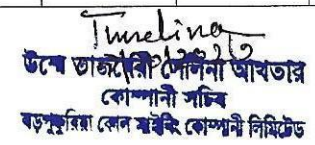 উম্মে তাজমেরী সেলিনা আখতার
কোম্পানী সচিব
বড়পুকুরিয়া কোল মাইনিং কোম্পানী লিমিটেড